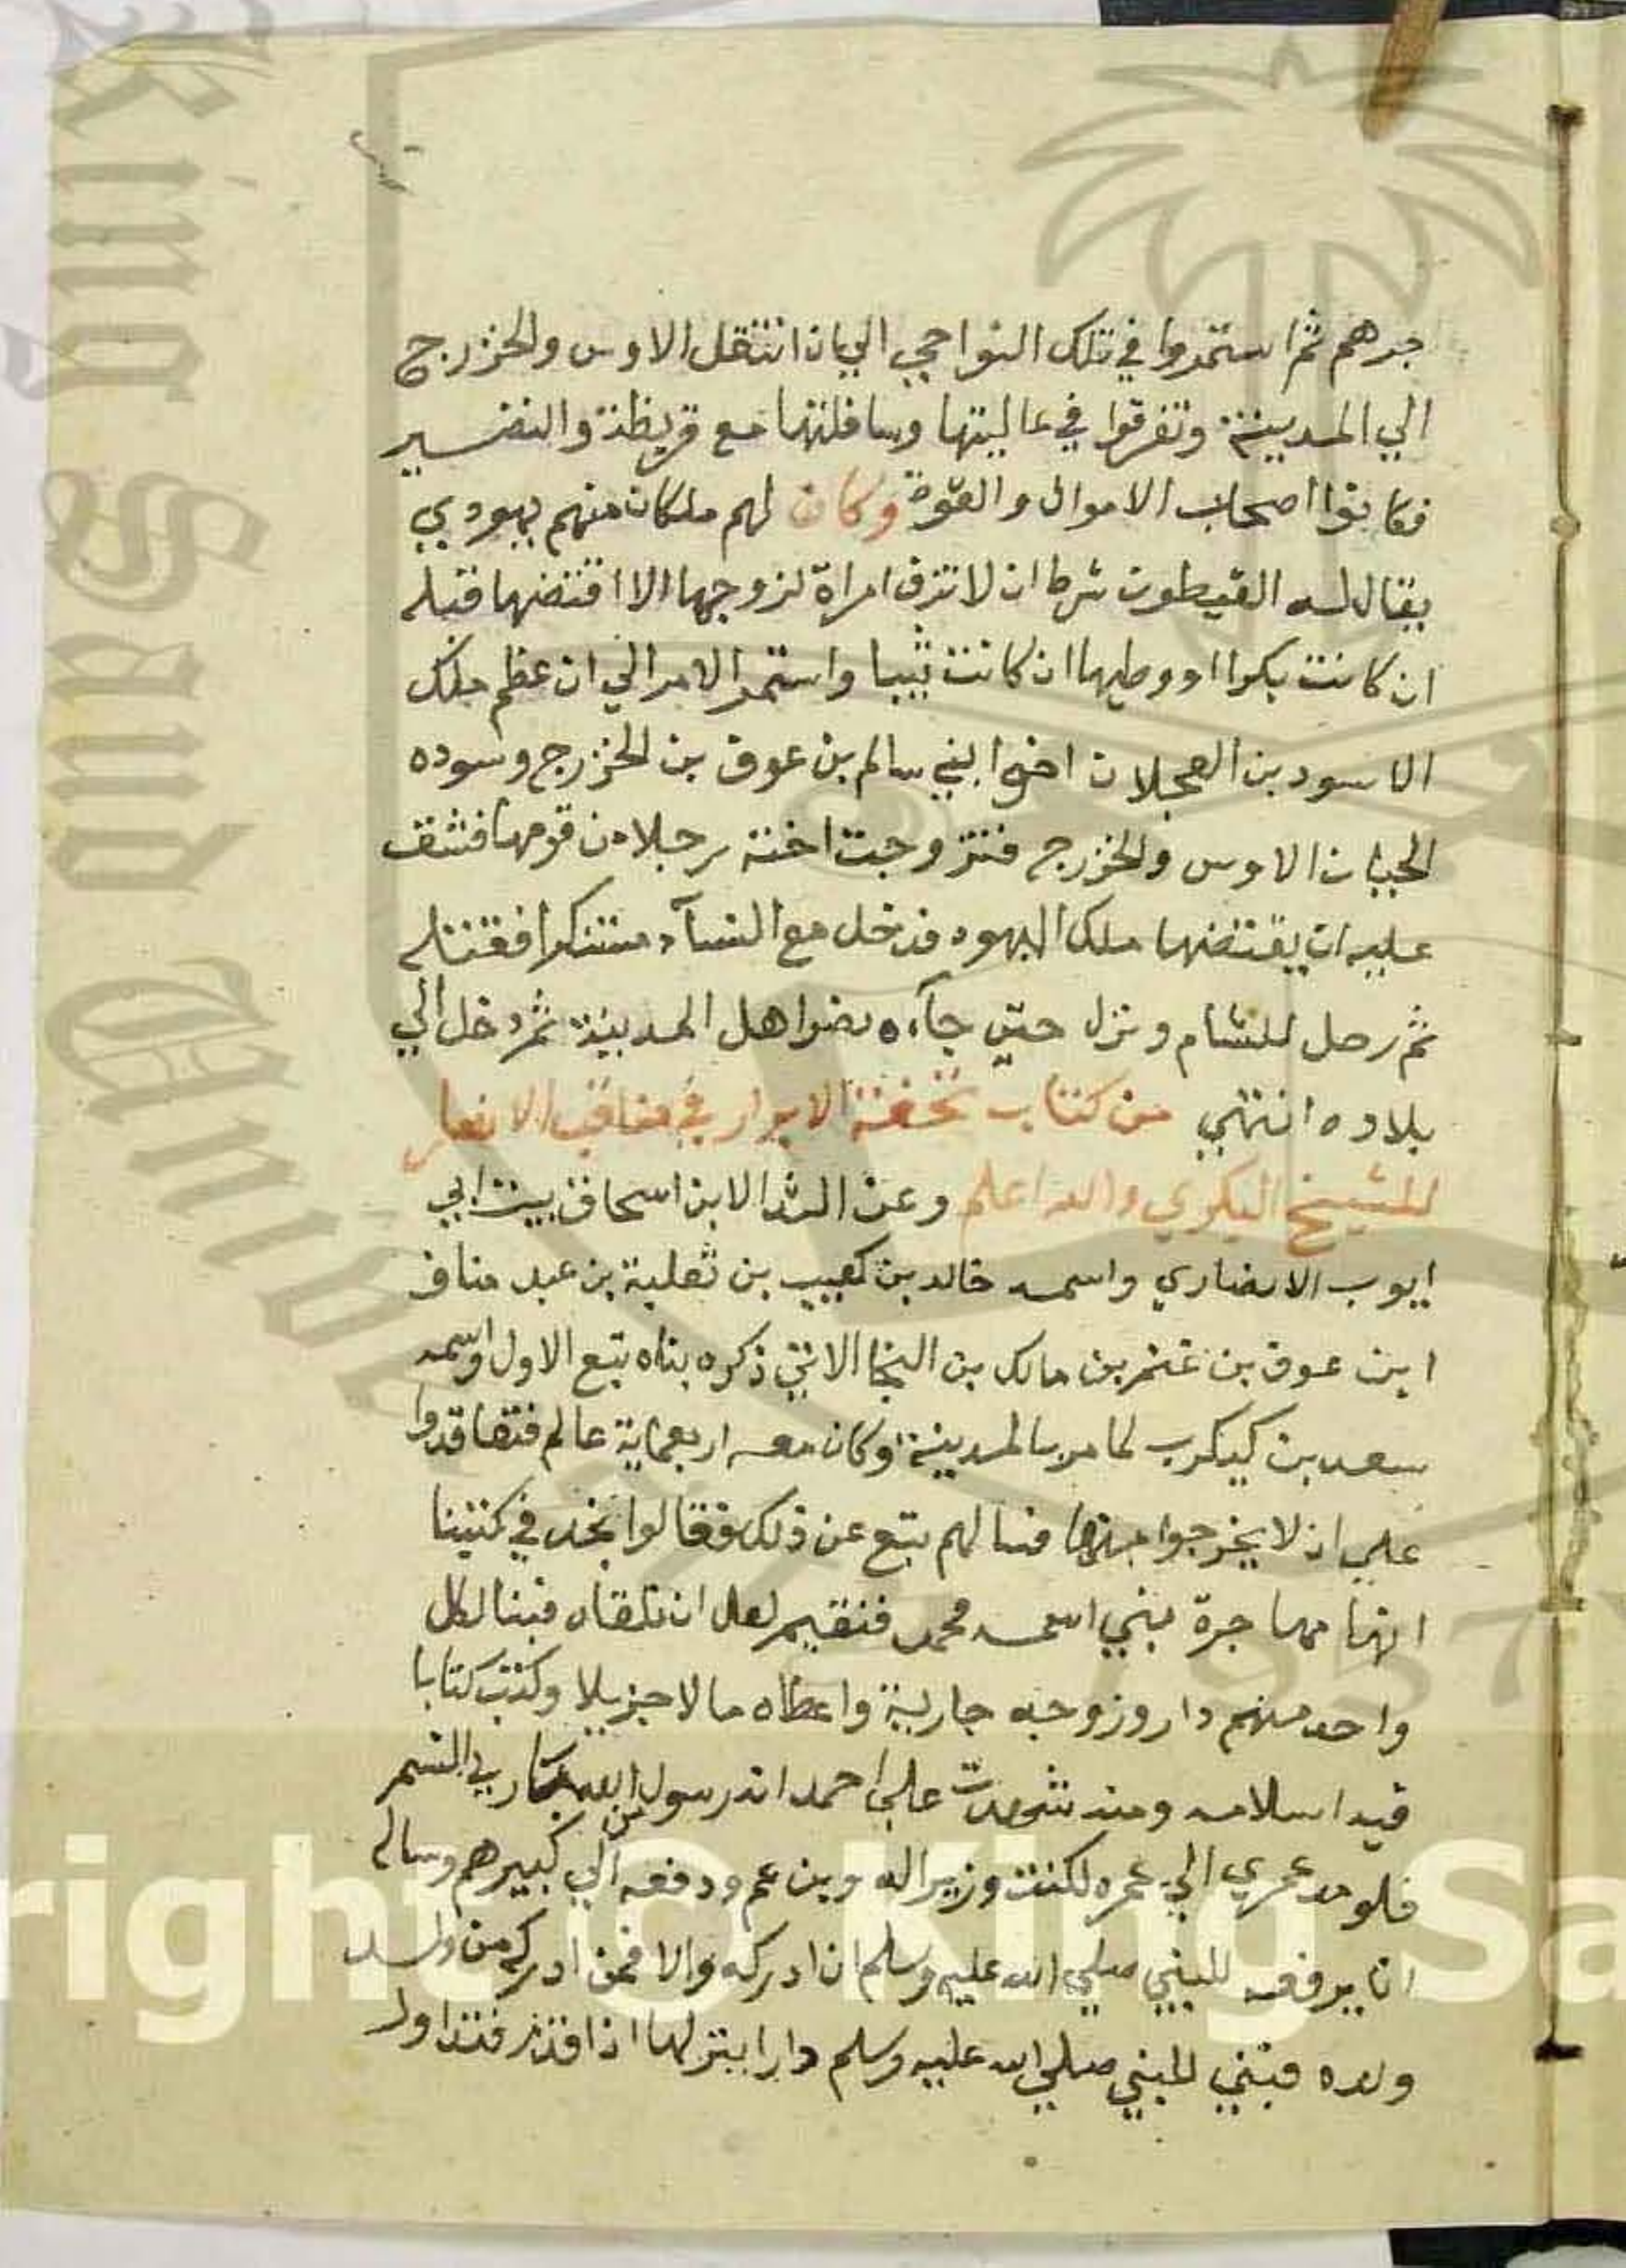 جرهم ثم استمروا في تلك النواحي الي ان انتقل الاوس والخزرج
الي المدينة وتفرقوا في عاليتها وسافلتها مع قريظة والنضير
فكانوا اصحاب الاموال والقوة وكان لهم ملكان منهم يهودي
يقال له القيطون شرط ان لا تزف امراة لزوجها الا اقتضها قبله
ان كانت بكرا او وطيها ان كانت ثيبا واستمر الامر الي ان عظم ملك
الاسود بن العجلان اخو ابني سالم بن عوف بن الخزرج وسوده
الحيان الاوس والخزرج فتزوجت اخته رجلا من قومها فشق
عليه ان يقتضها ملك اليهود فدخل مع النسآء متنكرا فقتله
ثم رحل للشام ونزل حتي جآءه نضوا هل المدينة ثم دخل الي
بلاده انتهي من كتاب تحفة الابرار في مناقب الانصار
للشيخ البكري والله اعلم وعن الابن اسحاق بيت ابي
ايوب الانصاري واسمه خالد بن كعيب بن ثعلبة بن عبد مناف
ابن عوف بن غنم بن مالك بن النجا الاتي ذكره بناه تبع الاول واسمه
سعد بن كيكرب لما مر بالمدينة وكان معه اربعماية عالم فتعاقدوا
علي ان لا يخرجوا منها فسالهم تبع عن ذلك فقالوا نجد في كتبنا
انها مهاجرة نبي اسمه محمد فنقيم لعل ان نلقاه فبنا لكل
واحد منهم دار وزوجه جارية واعطاه مالا جزيلا وكتب كتابا
فيه اسلامه ومنه شهدت علي احمد انه رسول من الله باري النسم
فلو مد عمري الي عمره لكنت وزيرا له وبن عم ودفعه الي كبيرهم وساله
ان يرفعه للنبي صلي الله عليه وسلم ان ادركه والا فمن ادركه من ولده
ولده فبني للنبي صلي الله عليه وسلم دارا ينزلها اذا قدم فتداول